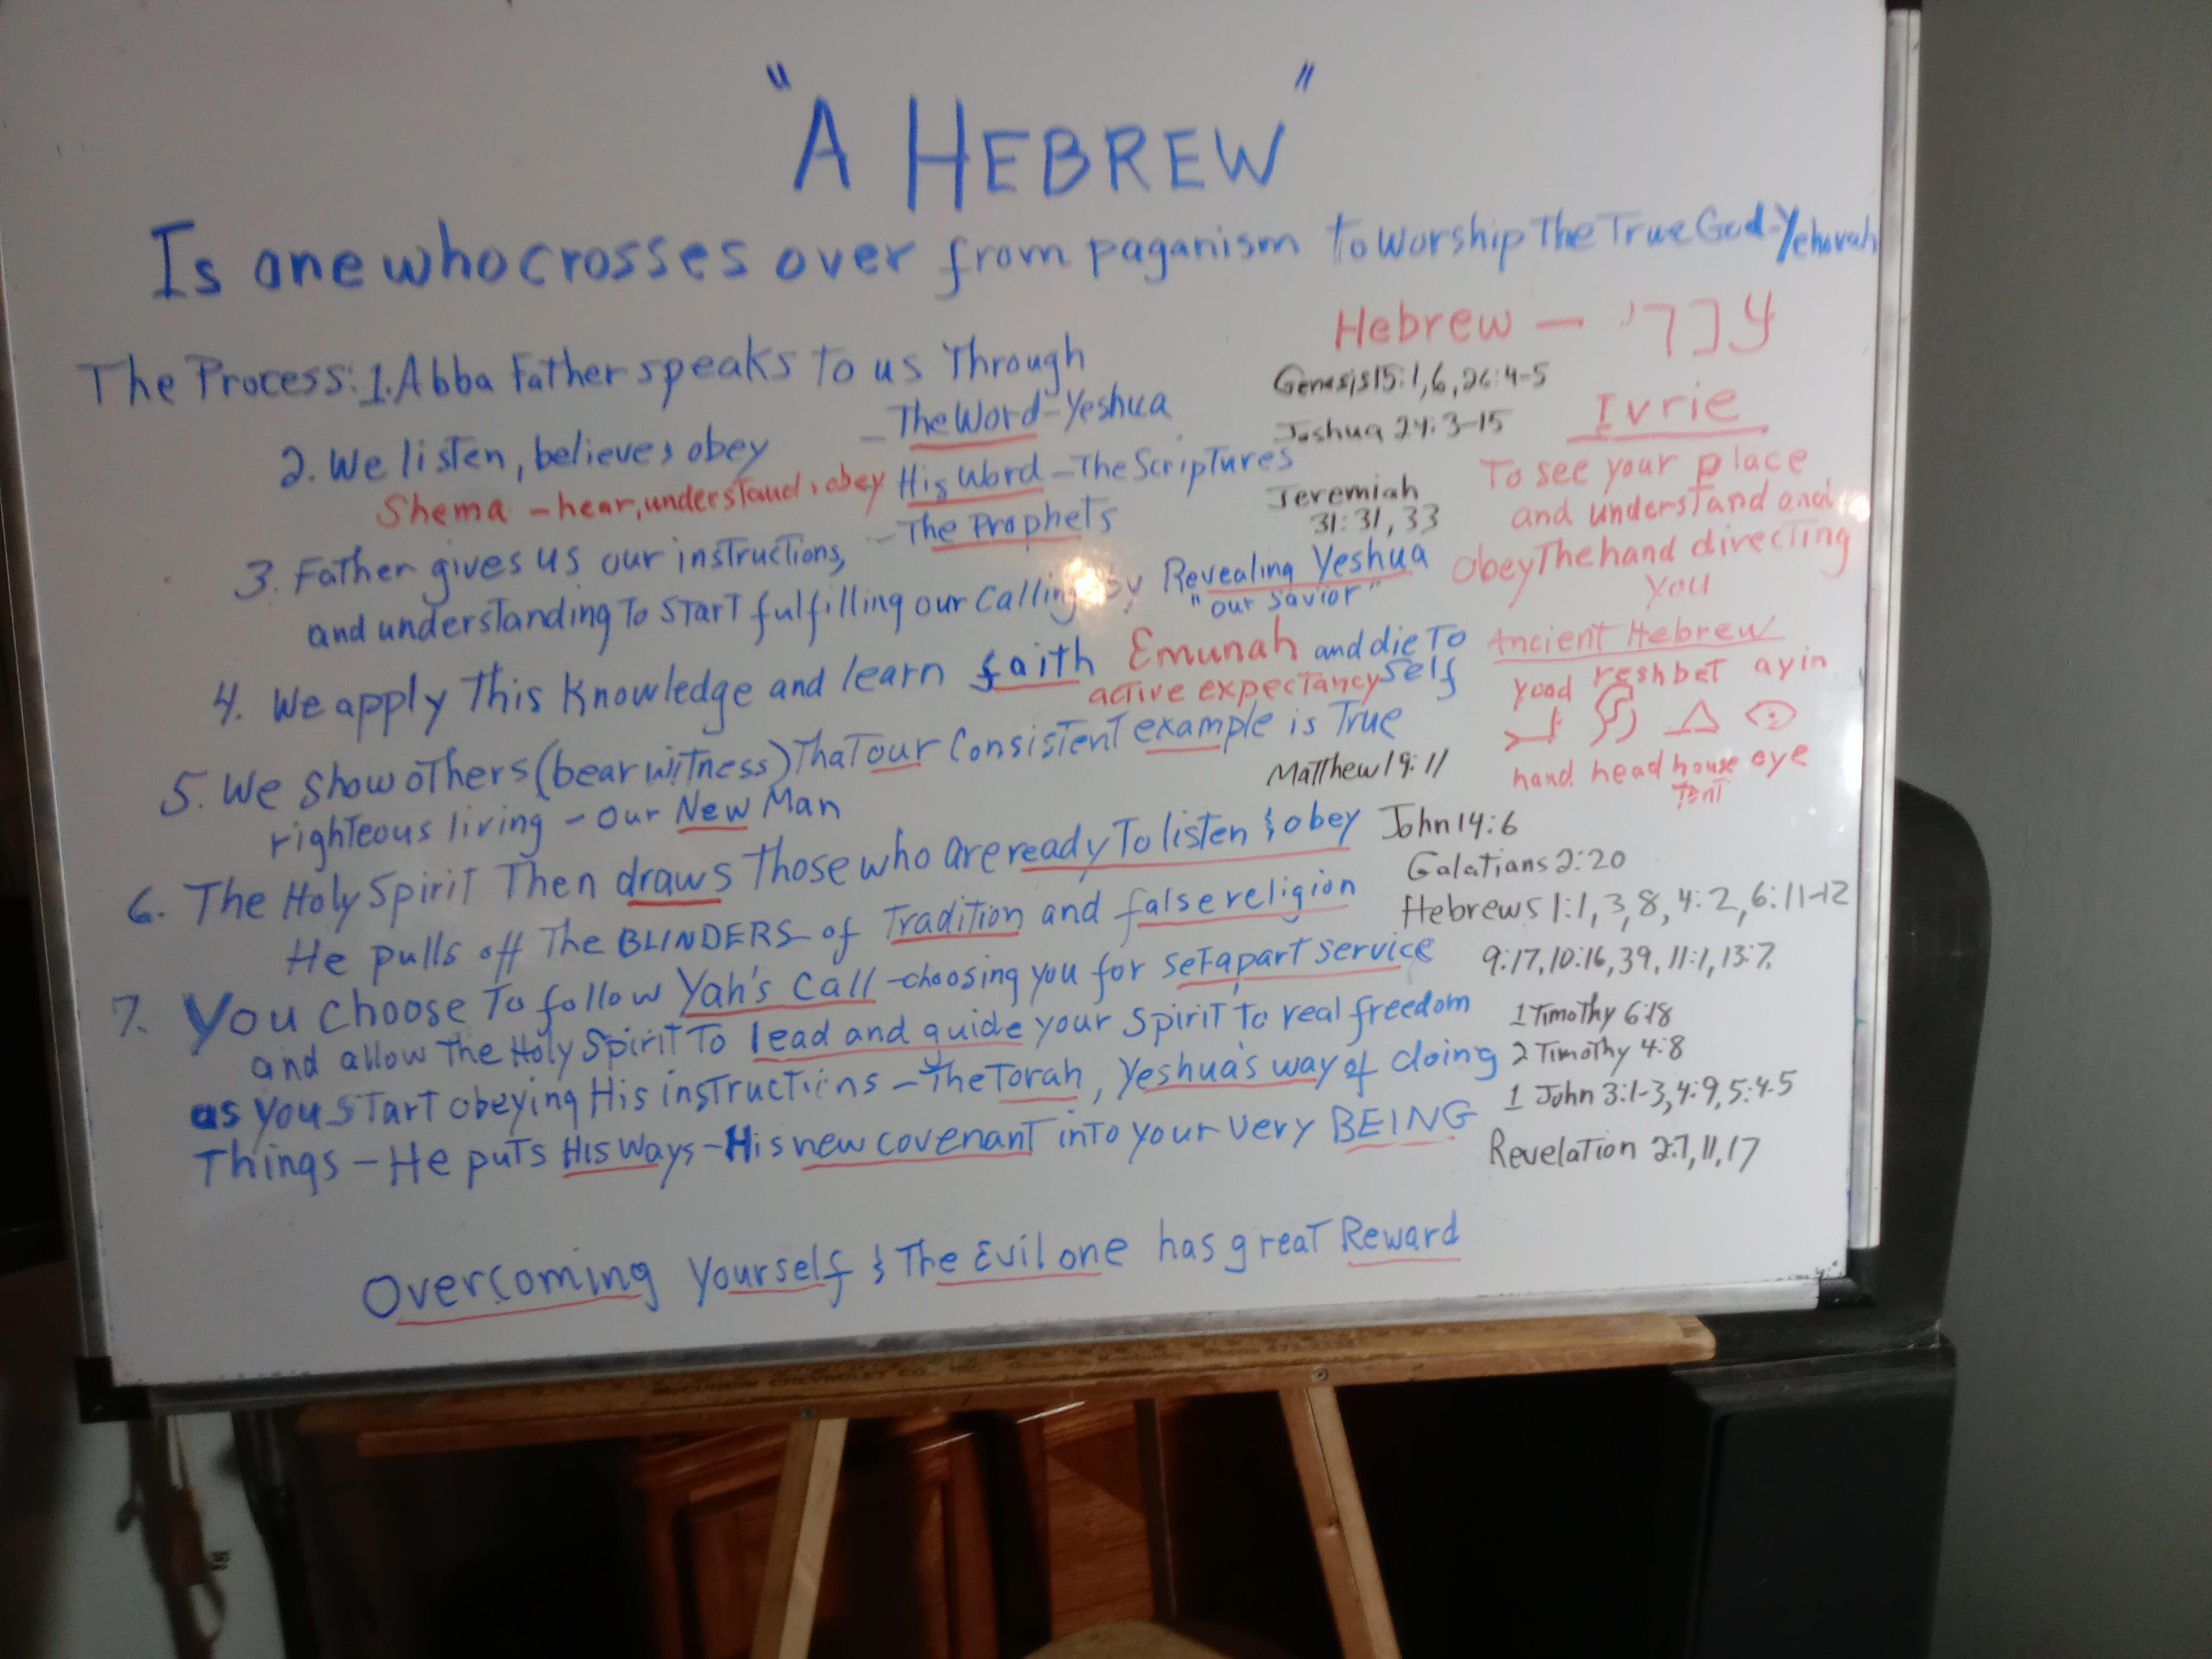 "A HEBREW"
Is one who crosses over from paganism To Worship The True God-Yehovah
Hebrew — עברי
The Process: 1. Abba Father speaks to us Through
- The Word - Yeshua
His Word - The Scriptures
- The Prophets
Genesis 15:1,6, 26:4-5
Joshua 24:3-15
Jeremiah
31:31,33
Ivrie
To see your place
and understand and
obey The hand directing
you
2. We listen, believe & obey
Shema - hear, understand, & obey
3. Father gives us our instructions,
and understanding To START fulfilling our Calling by Revealing Yeshua
"our savior"
4. We apply This Knowledge and learn faith Emunah and die To
self
active expectancy
Ancient Hebrew
yood resh bet ayin
hand head house eye
Tent
5. We show others (bear witness) That our Consistent example is True
righteous living - our New Man
Matthew 19:11
6. The Holy Spirit Then draws Those who are ready To listen & obey
He pulls off The BLINDERS of Tradition and false religion
John 14:6
Galatians 2:20
Hebrews 1:1,3,8, 4:2, 6:11-12
9:17, 10:16, 39, 11:1, 13:7
7. You choose To follow Yah's Call - choosing you for set apart service
and allow The Holy Spirit To lead and guide your spirit to real freedom
as you start obeying His instructions - The Torah, Yeshua's way of doing
Things - He puts His ways - His new covenant into your very BEING
1 Timothy 6:18
2 Timothy 4:8
1 John 3:1-3, 4:9, 5:4-5
Revelation 2:7, 11, 17
Overcoming Yourself & The Evil one has great Reward